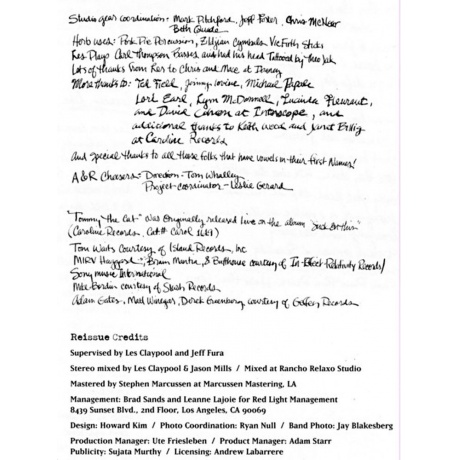 Studio gear coordination: Mark Pitchford, Jeff Porter, Chris McNear
Beth Quade
Herb uses: Pork Pie Percussion, Zildjian Cymbals, Vic Firth Sticks
Les Plays Carl Thompson Basses and had his head Tattooed by Theo Jak
Lots of thanks from Les to Chris and Mace at Downey
More thanks to: Ted Field, Jimmy Iovine, Michael Papale
Lori Earl, Kym McDonnell, Lucinda Fleurant,
and David Cohen at Interscope, and
additional thanks to Keith Wood and Janet Billig
at Caroline Records
and special thanks to all those folks that have vowels in their first Names!
A & R Chasers: Direction - Tom Whalley
Project-coordinator - Leslie Gerard
"Tommy the Cat" was originally released live on the album "Suck On This"
(Caroline Records, Cat# Carol 1619)
Tom Waits Courtesy of Island Records, Inc
MIRV Haggard, Brain Mantia, & Buffhouse courtesy of In-Effect Relativity Records/
Sony music International
Mike Bordin courtesy of Slash Records
Adam Gates, Matt Winegar, Derek Greenberg courtesy of Records
Reissue Credits
Supervised by Les Claypool and Jeff Fura
Stereo mixed by Les Claypool & Jason Mills / Mixed at Rancho Relaxo Studio
Mastered by Stephen Marcussen at Marcussen Mastering, LA
Management: Brad Sands and Leanne Lajoie for Red Light Management
8439 Sunset Blvd., 2nd Floor, Los Angeles, CA 90069
Design: Howard Kim / Photo Coordination: Ryan Null / Band Photo: Jay Blakesberg
Production Manager: Ute Friesleben / Product Manager: Adam Starr
Publicity: Sujata Murthy / Licensing: Andrew Labarrere